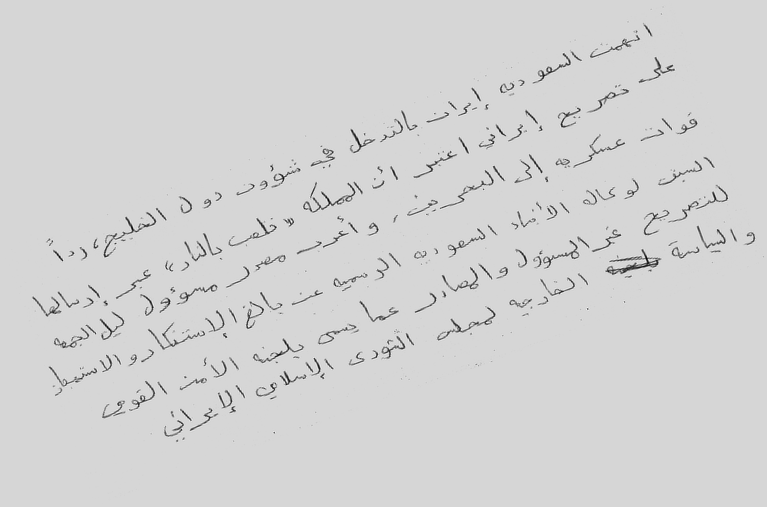 اتهمت السعوديه إيران بالتدخل في شؤون دول الخليج، رداً
على تصريح إيراني اعتبر أن المملكه "تلعب بالنار" عبر إرسالها
قوات عسكريه إلى البحرين، وأعرب مصدر مسؤول ليل الجمعه
السبت لوكاله الأنباء السعوديه الرسميه عن بالغ الإستنكار والاستهجان
للتصريح غير المسؤول والصادر عما يسمى بلجنه الأمن القومي
والسياسة الخارجيه لمجلس الشورى الإسلامي الإيراني